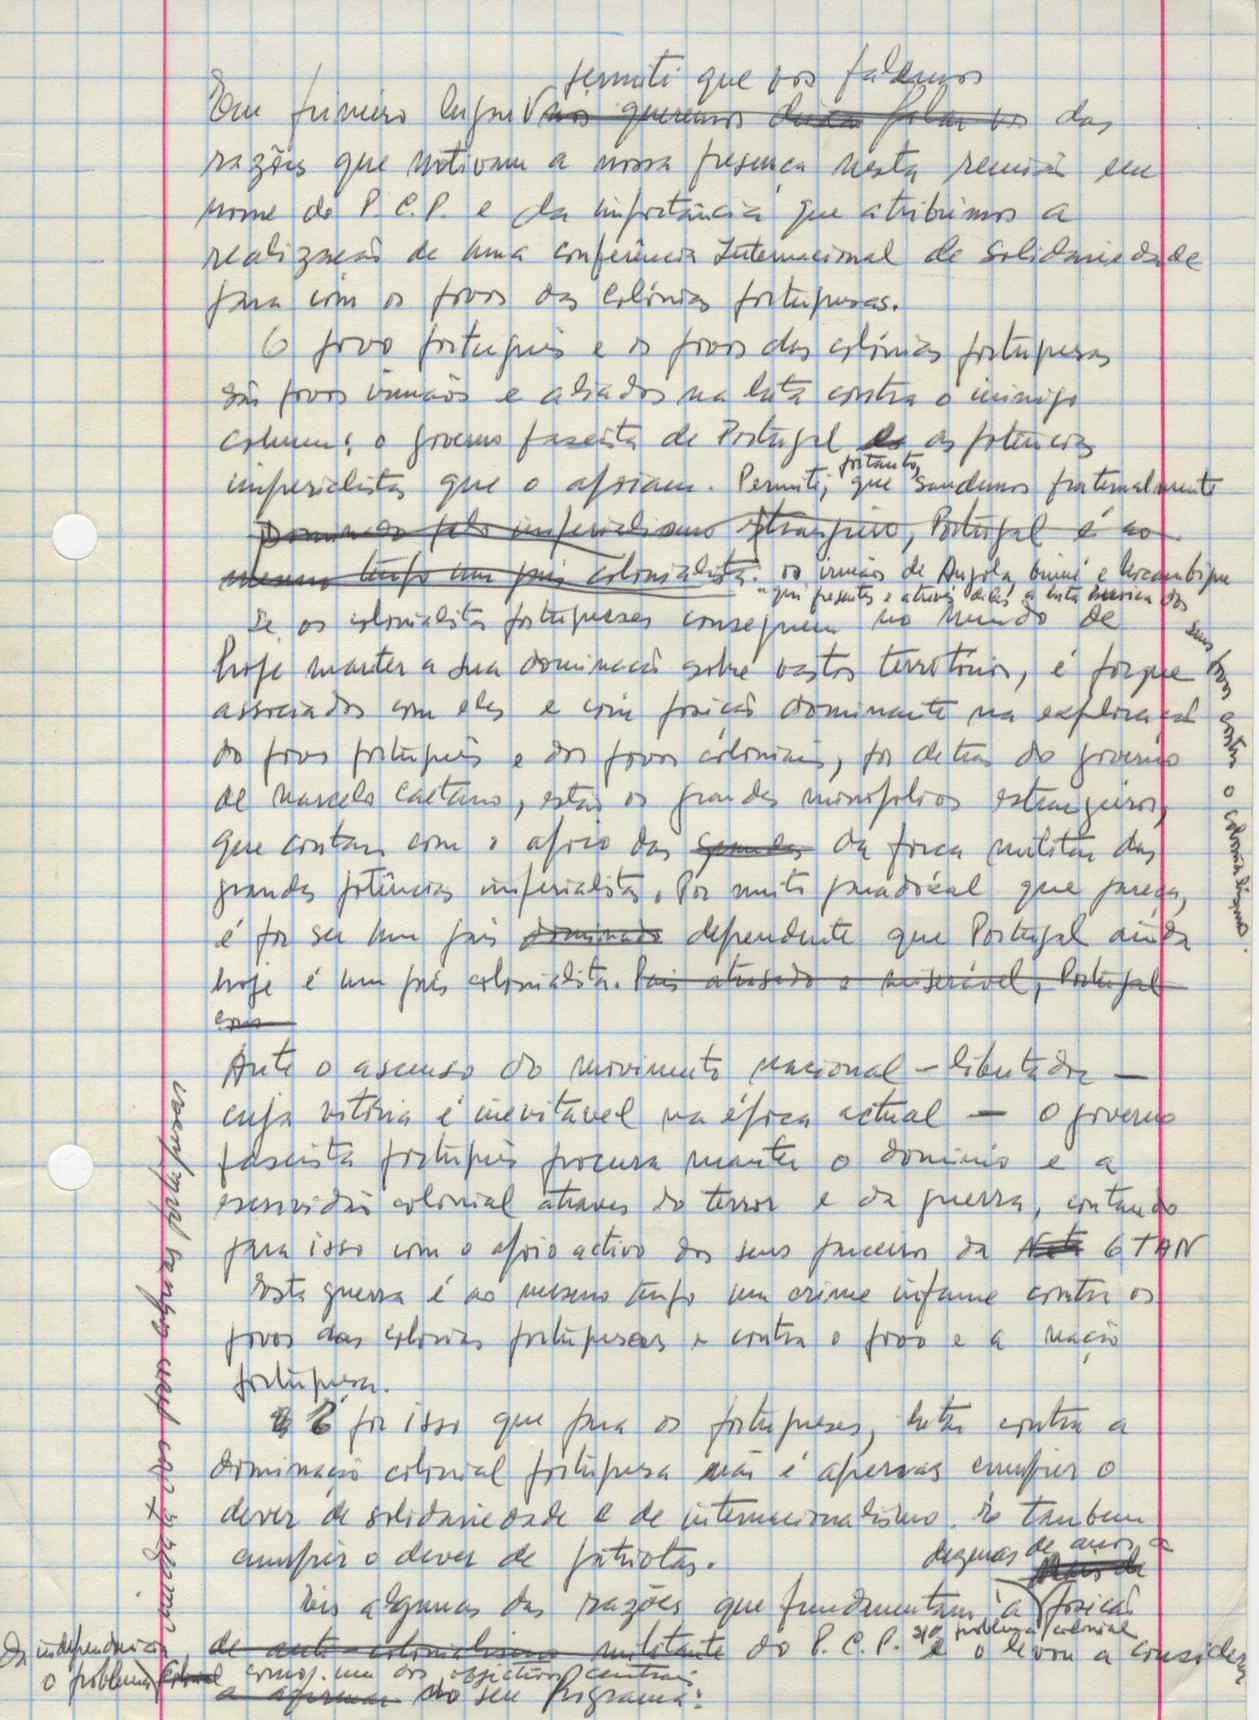 permiti que vos falemos
Em primeiro lugar nós queremos deixa falar vos das
razões que motivam a nossa presença nesta reunião em
nome do P.C.P. e da importância que atribuimos a
realização de uma conferência Internacional de Solidariedade
para com os povos das Colónias portuguesas.
O povo português e os povos das colónias portuguesas
são povos irmãos e aliados na luta contra o inimigo
comum: o governo fascista de Portugal as potências
portanto,
imperialistas que o apoiam. Permiti, que saudemos fraternalmente
Dominado pelo imperialismo estrangeiro, Portugal é ao
mesmo tempo um país colonialista. os irmãos de Angola, Guiné e Moçambique
aqui presentes e através deles a luta heroica dos
seus povos contra o colonialismo.
Se os colonialistas portugueses conseguem no mundo de
hoje manter a sua dominação sobre vastos territórios, é porque
associados com eles e com posição dominante na exploração
do povo português e dos povos coloniais, por detras do governo
de Marcelo Caetano, estão os grandes monopólios estrangeiros,
que contam com o apoio das grandes da força militar das
grandes potências imperialistas. Por muito paradoxal que pareça,
é por ser um país dominado dependente que Portugal ainda
hoje é um país colonialista. País atrasado e miserável, Portugal
Ante o ascenso do movimento nacional-libertador —
cuja vitória é inevitável na época actual — o governo
fascista português procura manter o domínio e a
escravidão colonial atraves do terror e da guerra, contando
para isso com o apoio activo dos seus parceiros da Nato OTAN
Esta guerra é ao mesmo tempo um crime infame contra os
povos das colonias portuguesas e contra o povo e a nação
portuguesa.
É por isso que para os portugueses, lutar contra a
dominação colonial portuguesa não é apenas cumprir o
dever de solidariedade e de internacionalismo. É tambem
cumprir o dever de patriotas.
dezenas de anos a
mais de
Eis algumas das razões que fundamentam a posição
s/o problema colonial
de anti-colonialismo militante do P.C.P. e o levou a considerar
da independencia
o problema colonial como um dos objectivos centrais
a afirmar do seu Programa: